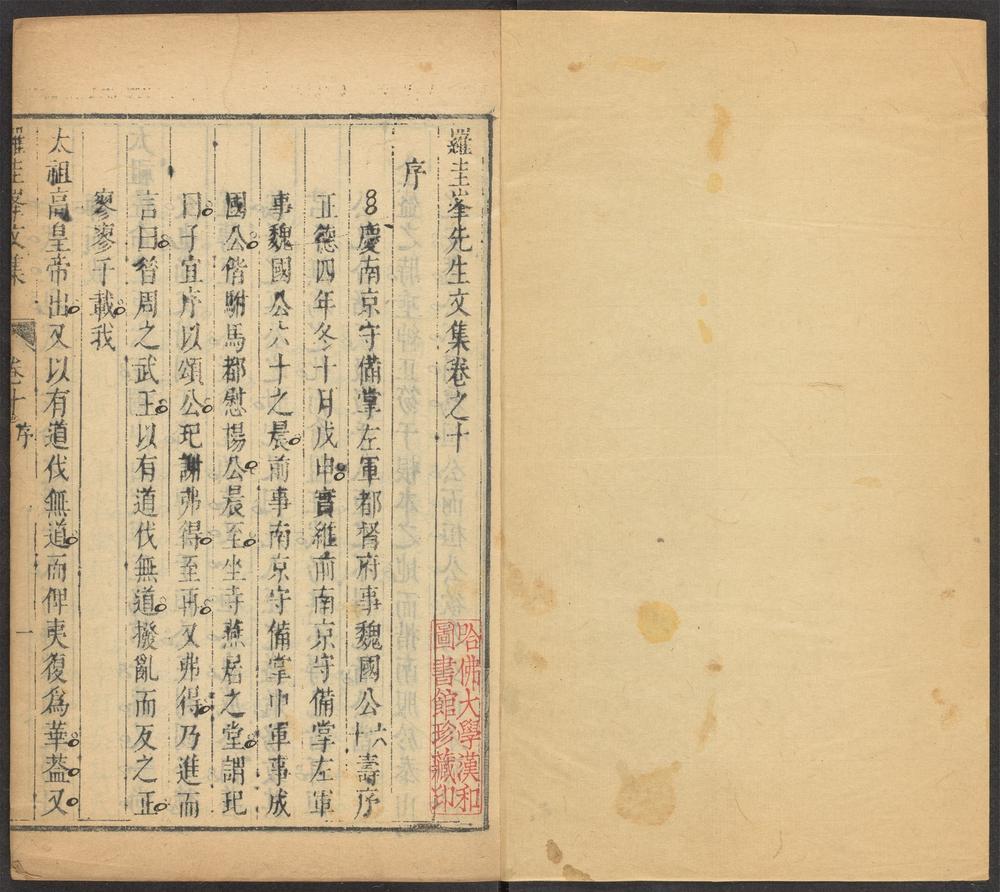 羅圭峯先生文集卷之十
序
慶南京守備掌左軍都督府事魏國公六十壽序
正德四年冬十月戊申實維前南京守備掌左軍
事魏國公六十之晨前事南京守備掌中軍事成
國公偕駙馬都慰楊公晨至坐寺燕居之堂謂玘
曰子宜序以頌公玘謝弗得至再又弗得乃進而
言曰昔周之武王以有道伐無道撥亂而反之正
寥寥千載我
太祖高皇帝出又以有道伐無道而俾夷復爲華蓋又
羅圭峯文集 卷十 序 一
哈佛大學漢和
圖書館珍藏印